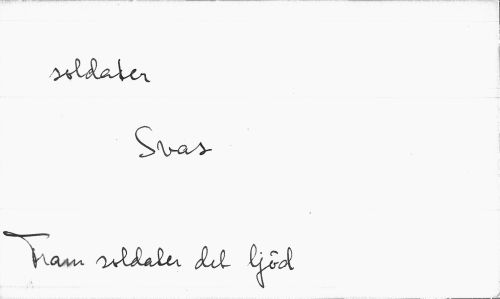 soldater
Svas
Fram soldater det ljöd